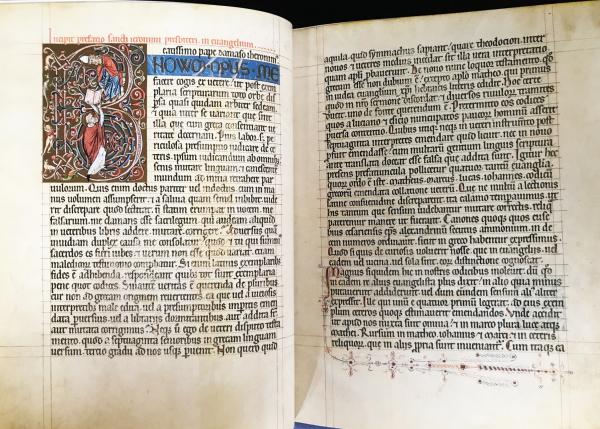 Incipit prefatio sancti ieronimi presbiteri in evangelium
eatissimo pape damaso iheronimus
NOVUM OPUS ME
facere cogis ex vetere ut post exem
plaria scripturarum toto orbe dis
persa quasi quidam arbiter sedeam
et quia inter se variant que sint
illa que cum greca consentiant ve
ritate decernam. Pius labor sed pe
riculosa presumptio iudicare de ce
teris ipsum iudicandum ab omnibus
senis mutare linguam et canescentem
mundum ad initia retrahere par
vulorum. Quis enim doctus pariter vel indoctus cum in ma
nus volumen assumpserit et a saliva quam semel imbibit vide
rit discrepare quod lectitat non statim erumpat in vocem me
falsarium me clamans esse sacrilegum qui audeam aliquid
in veteribus libris addere mutare corrigere. Adversus quam
invidiam duplex causa me consolatur quod et tu qui summus
sacerdos es fieri iubes et verum non esse quod variat etiam
maledicorum testimonio comprobatur. Si enim latinis exemplaribus
fides est adhibenda respondeant quibus tot sunt exemplaria
pene quot codices. Sin autem veritas est querenda de pluribus
cur non ad grecam originem revertentes ea que vel a viciosis
interpretibus male edita vel a presumptoribus imperitis emen
data perversius vel a librariis dormitantibus aut addita sunt
aut mutata corrigimus. Neque vero ego de veteri disputo testa
mento quod a septuaginta senioribus in grecam linguam
versum tercio gradu ad nos usque pervenit. Non quero quid
aquila quid symmachus sapiant quare theodocion inter
novos et veteres medius incedat sit illa vera interpretatio
quam apostoli probaverunt. De novo nunc loquor testamento quod
grecum esse non dubium est excepto apostolo matheo qui primus
in iudea evangelium christi hebraicis litteris edidit. Hoc certe
quod in nostro sermone discordat et diversos rivulorum tramites
ducit uno de fonte querendum est. Pretermitto eos codices
quos a luciano et esicio nuncupatos paucorum hominum asserit
perversa contentio. Quibus utique neque in veteri instrumento post
septuaginta interpretes emendare quid licuit nec in novo
profuit emendasse cum multarum gentium linguis scriptura
ante translata doceat esse falsa que addita sunt. Igitur hec
presens prefatiuncula pollicetur quatuor tantum evangelia
quorum ordo est iste matheus marcus lucas iohannes codicum
grecorum emendata collatione veterum. Que ne multum a lectionis
latine consuetudine discreparent ita calamo temperavimus ut
his tantum que sensum videbantur mutare correctis reliqua
manere pateremur ut fuerant. Canones quoque quos euse
bius cesariensis episcopus alexandrinum secutus ammonium in de
cem numeros ordinavit sicut in greco habentur expressimus.
Quod si quis de curiosis voluerit nosse que in evangeliis vel
eadem vel vicina vel sola sint eorum distinctione cognoscat.
Magnus siquidem hic in nostris codicibus inolevit dum quod
in eadem re alius evangelista plus dixit in alio quia minus
putaverint addiderunt vel dum eundem sensum alius aliter
expressit. Ille qui unum e quatuor primum legerat ad eius exem
plum ceteros quoque estimaverit emendandos. Unde accidit
ut apud nos mixta sint omnia et in marco plura luce atque
mathei. Rursum in matheo iohannis et marci et in ceteris
reliquorum que in aliis propria sunt inveniantur. Cum itaque ca